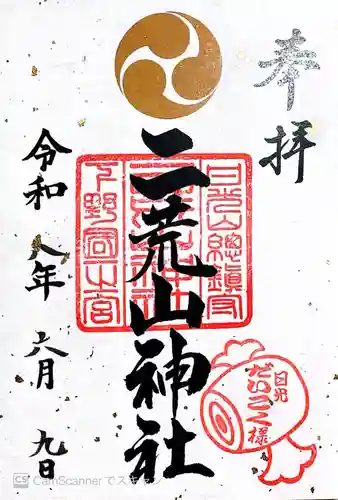 奉拝
二荒山神社
日光山總鎮守
下野國一之宮
令和八年六月九日
日光
だいこく様
CS CamScannerでスキャン